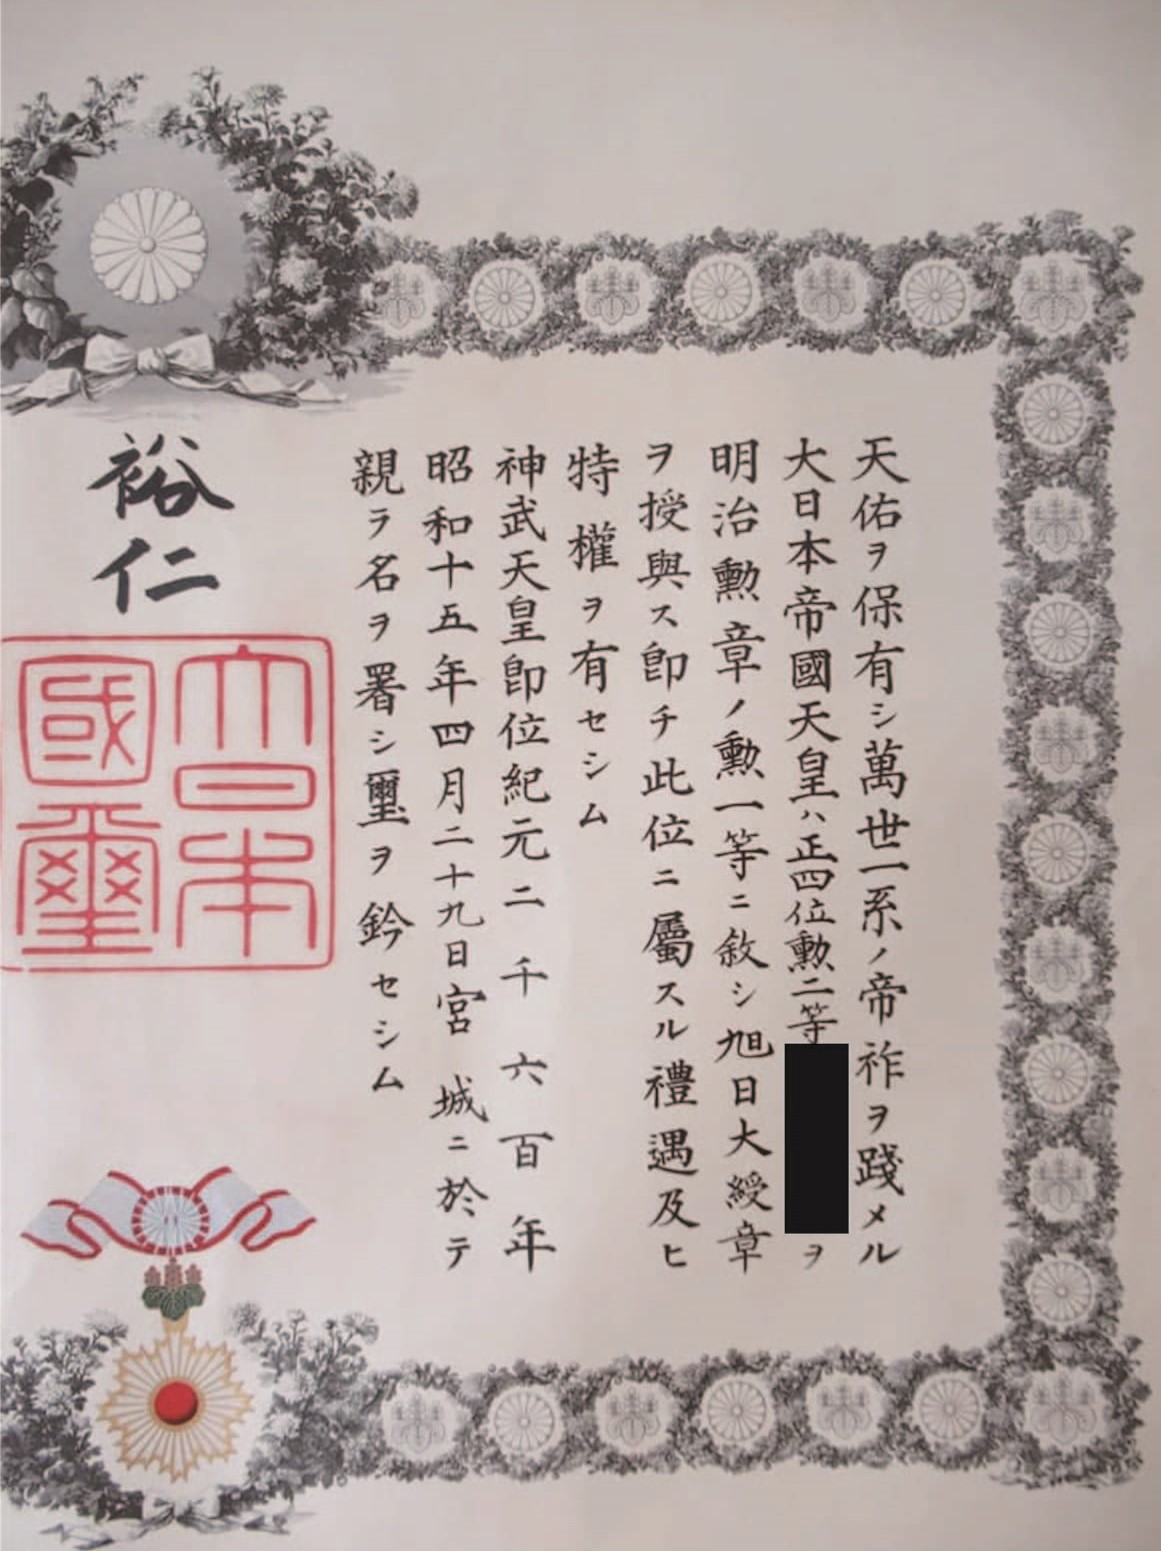 天佑ヲ保有シ萬世一系ノ帝祚ヲ踐メル
大日本帝國天皇ハ正四位勲二等ヲ
明治勲章ノ勲一等ニ敘シ旭日大綬章
ヲ授與ス卽チ此位ニ屬スル禮遇及ヒ
特權ヲ有セシム
神武天皇卽位紀元二千六百年
昭和十五年四月二十九日宮城ニ於テ
親ラ名ヲ署シ璽ヲ鈐セシム
裕仁
大日本
國璽